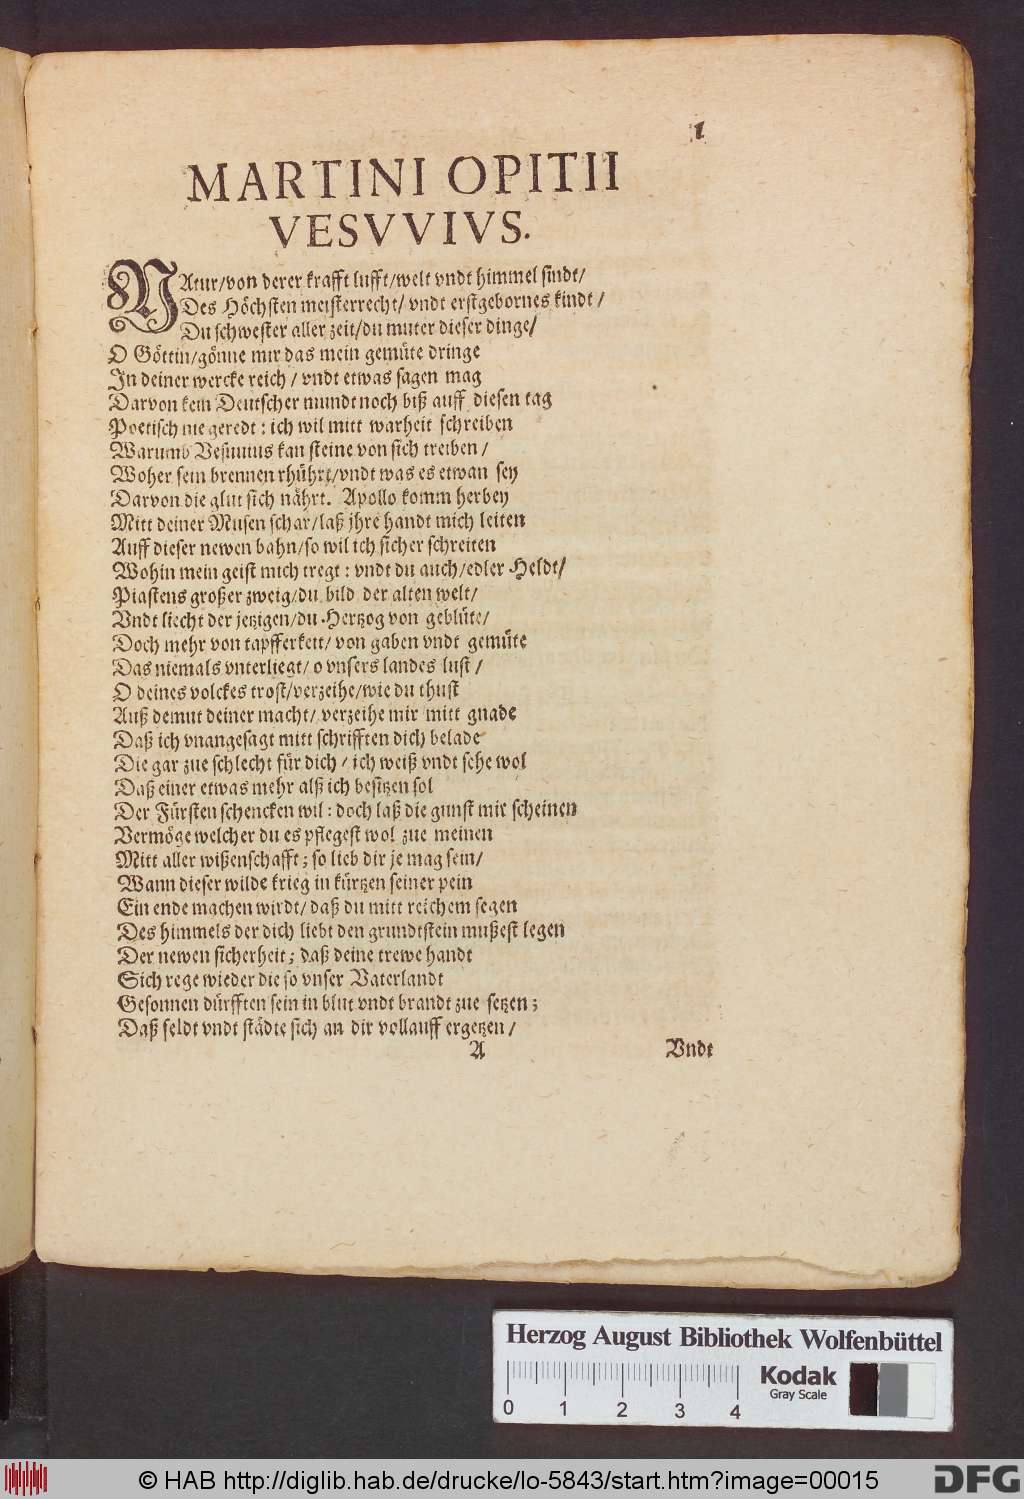 1
MARTINI OPITII
VESVVIVS.
NAtur/von derer krafft lufft/welt vndt himmel sindt/
Des Höchsten meisterrecht/ vndt erstgebornes kindt/
Du schwester aller zeit/du muter dieser dinge/
O Göttin/gönne mir das mein gemüte dringe
In deiner wercke reich/ vndt etwas sagen mag
Darvon kein Deutscher mundt noch biß auff diesen tag
Poetisch nie geredt: ich wil mitt warheit schreiben
Warumb Vesuuius kan steine von sich treiben/
Woher sein brennen rhührt/vndt was es etwan sey
Darvon die glut sich nährt. Apollo komm herbey
Mitt deiner Musen schar/laß jhre handt mich leiten
Auff dieser newen bahn/so wil ich sicher schreiten
Wohin mein geist mich tregt: vndt du auch/edler Heldt/
Piastens großer zweig/du bild der alten welt/
Vndt liecht der jetzigen/du Hertzog von geblüte/
Doch mehr von tapfferkeit/ von gaben vndt gemüte
Das niemals vnterliegt/o vnsers landes lust/
O deines volckes trost/verzeihe/wie du thust
Auß demut deiner macht/ verzeihe mir mitt gnade
Daß ich vnangesagt mitt schrifften dich belade
Die gar zue schlecht für dich/ ich weiß vndt sehe wol
Daß einer etwas mehr alß ich besitzen sol
Der Fürsten schencken wil: doch laß die gunst mir scheinen
Vermöge welcher du es pflegest wol zue meinen
Mitt aller wißenschafft; so lieb dir je mag sein/
Wann dieser wilde krieg in kürtzen seiner pein
Ein ende machen wirdt/ daß du mitt reichem segen
Des himmels der dich liebt den grundtstein mußest legen
Der newen sicherheit; daß deine trewe handt
Sich rege wieder die so vnser Vaterlandt
Gesonnen dürfften sein in blut vndt brandt zue setzen;
Daß feldt vndt städte sich an dir vollauff ergetzen/
A Vndt
Herzog August Bibliothek Wolfenbüttel
0 1 2 3 4
Kodak
Gray Scale
© HAB http://diglib.hab.de/drucke/lo-5843/start.htm?image=00015
DFG